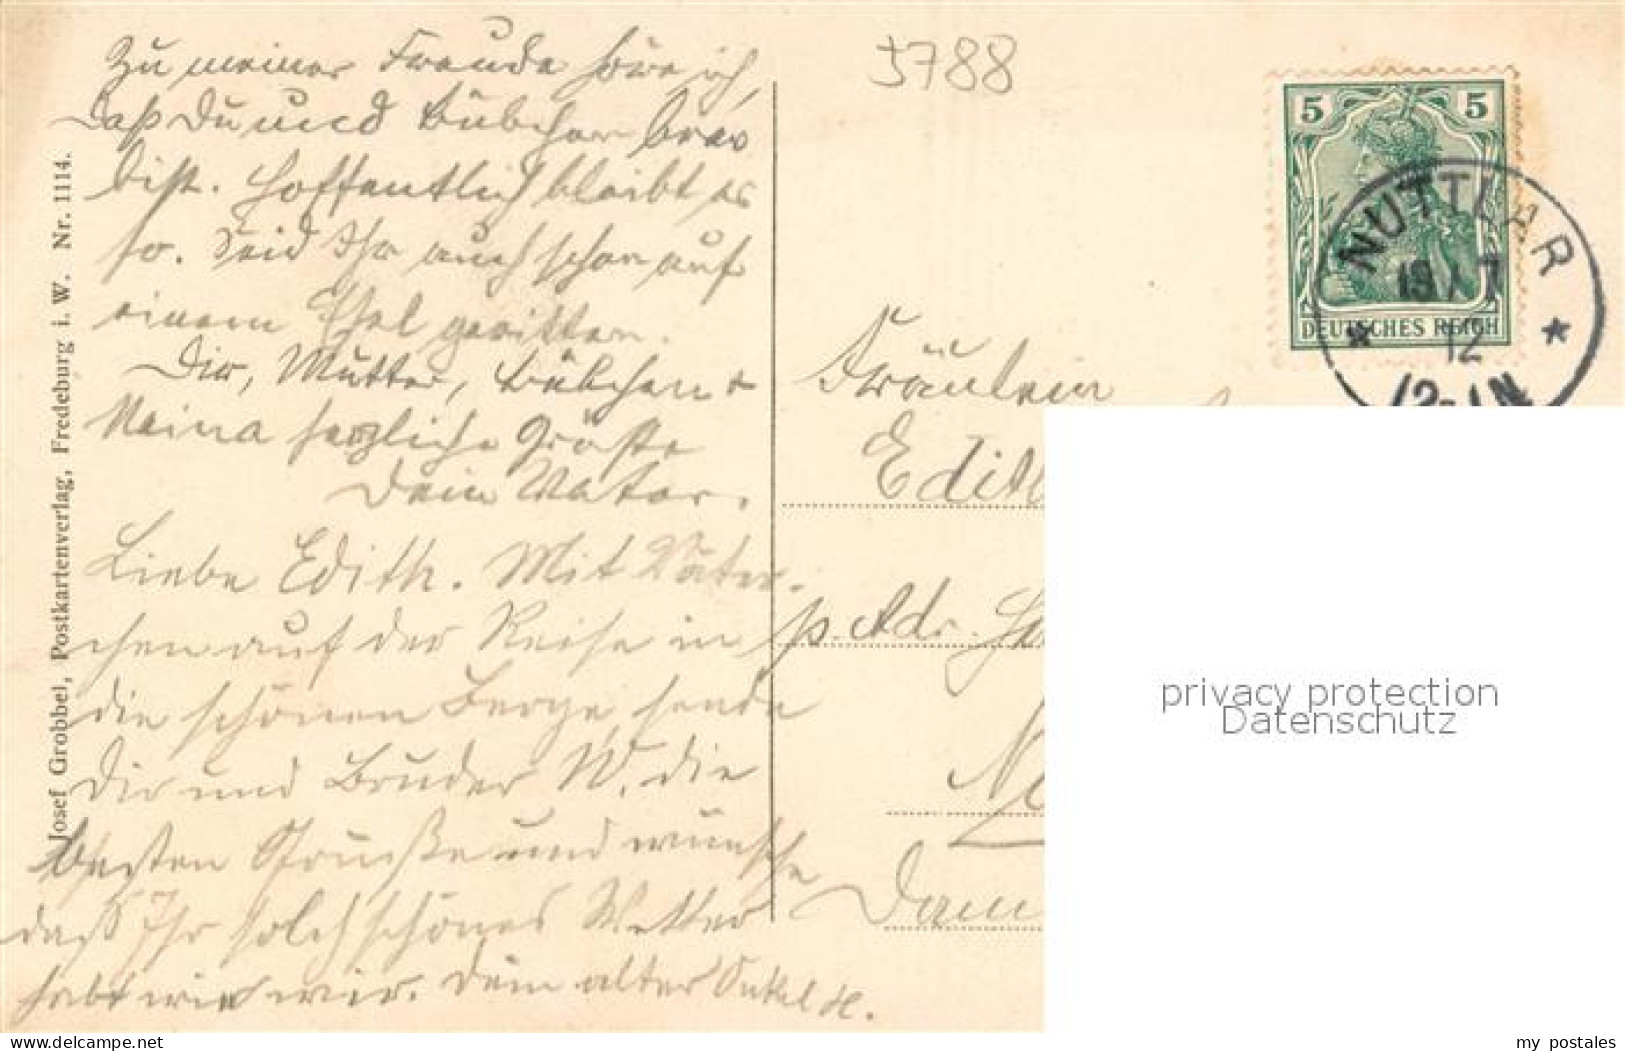 Zu meiner Freude höre ich,
daß Du und Bübchen brav
bist. Hoffentlich bleibt es
so. Seid Ihr auch schon auf
einem Esel geritten.
Dir, Mutter, Bübchen &
herzliche Grüße
Dein Vater.
Liebe Edith. Mit Väter-
chen auf der Reise in
die schönen Berge, sende
Dir und Bruder W. die
besten Grüße und wünsche
daß Ihr solch schönes Wetter
habt wie wir. Dein alter Onkel H.
Josef Grobbel, Postkartenverlag, Fredeburg i. W. Nr. 1114.
5788
5 5
DEUTSCHES REICH
NUTTLAR
12
12-1N
Fräulein
Edith
p. Adr.
privacy protection
Datenschutz
delcampe.net
my postales